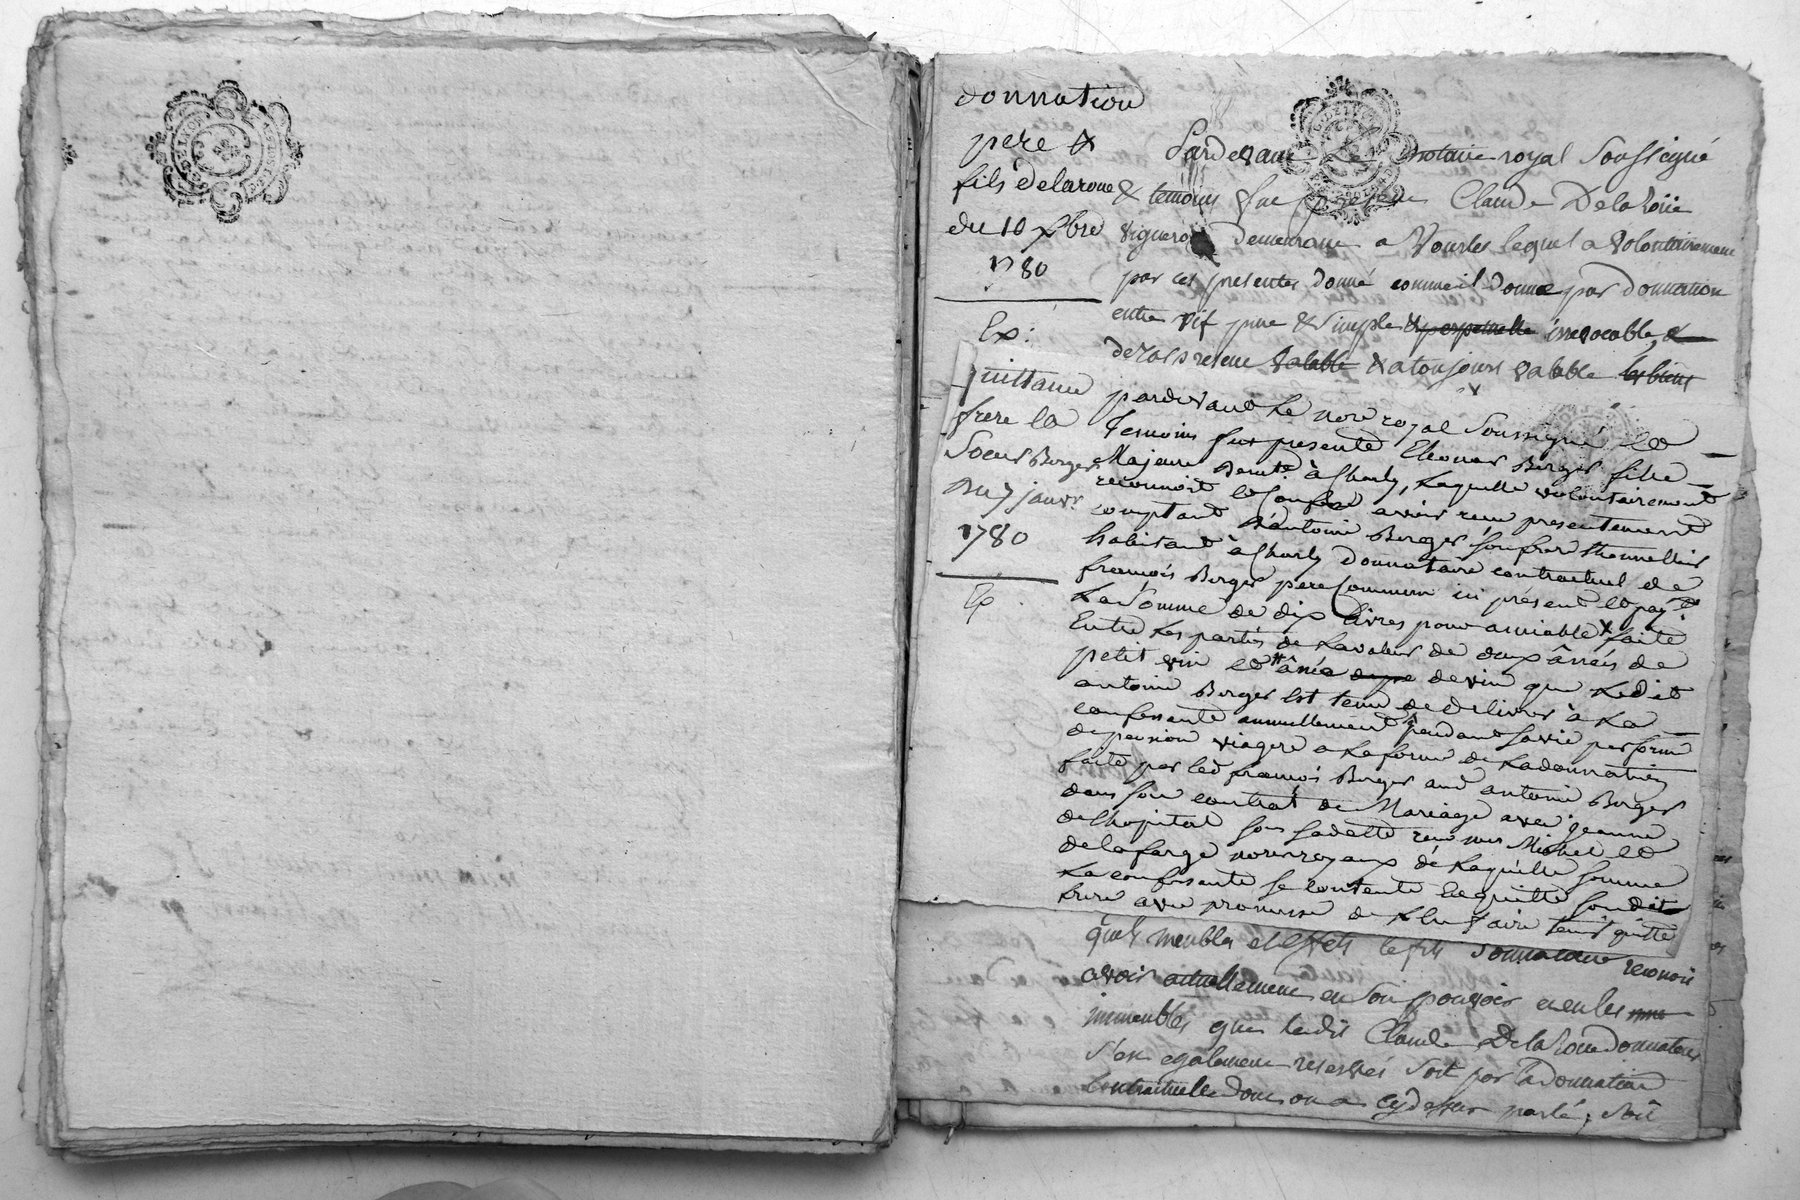 donnation
pere &
fils delaroue
du 10 xbre
1780
Ex:
Pardevant Le notaire royal Soussigné
& temoins fut present Claude Delaroüe
vigneron demeurant a Vourles lequel a volontairement
par ces presentes donné comme il donne par donnation
entre vif pure & simple & perpetuelle irrevocable, &
des a present valable & a toujours valable les biens
quittance
frere la
Soeur Berger
Du 7 janvr
1780
Ex
pardevant Le nore royal Soussigné et
Tesmoins fut presente Eleonor Berger fille
Majeure demte à Charly, Laquelle volontairement
reconnoit et Confesse avoir reçu presentement
comptant d'antoine Berger son frere
habitant à Charly donnataire contractuel de
françois Berger pere Commun ici présent et payt
La Somme de dix livres pour amiable x faite
Entre Les parties de La valeur de deux ânées de
petit vin et ânée de vin que Ledit
antoine Berger Est tenu de delivrer à La
confessante annuellement pendant sa vie par forme
de pension viagere a La forme de La donnation
faite par led françois Berger aud antoine Berger
dans son contrat de Mariage avec jeanne
delhopital sous sa datte reçu Mes Michel et
delafarge nores royaux de Laquelle somme
La confessante se contente En quitte son dit
frere avec promesse de L'en faire tenir quitte
quels meubles et effets le fils donnataire reconoit
avoir actuellement en son pouvoir et en les
immeubles que ledit Claude Delaroue donnateur
s'est egalement reservés soit par la donnation
Contractuelle dont on a cydessus parlé, soit